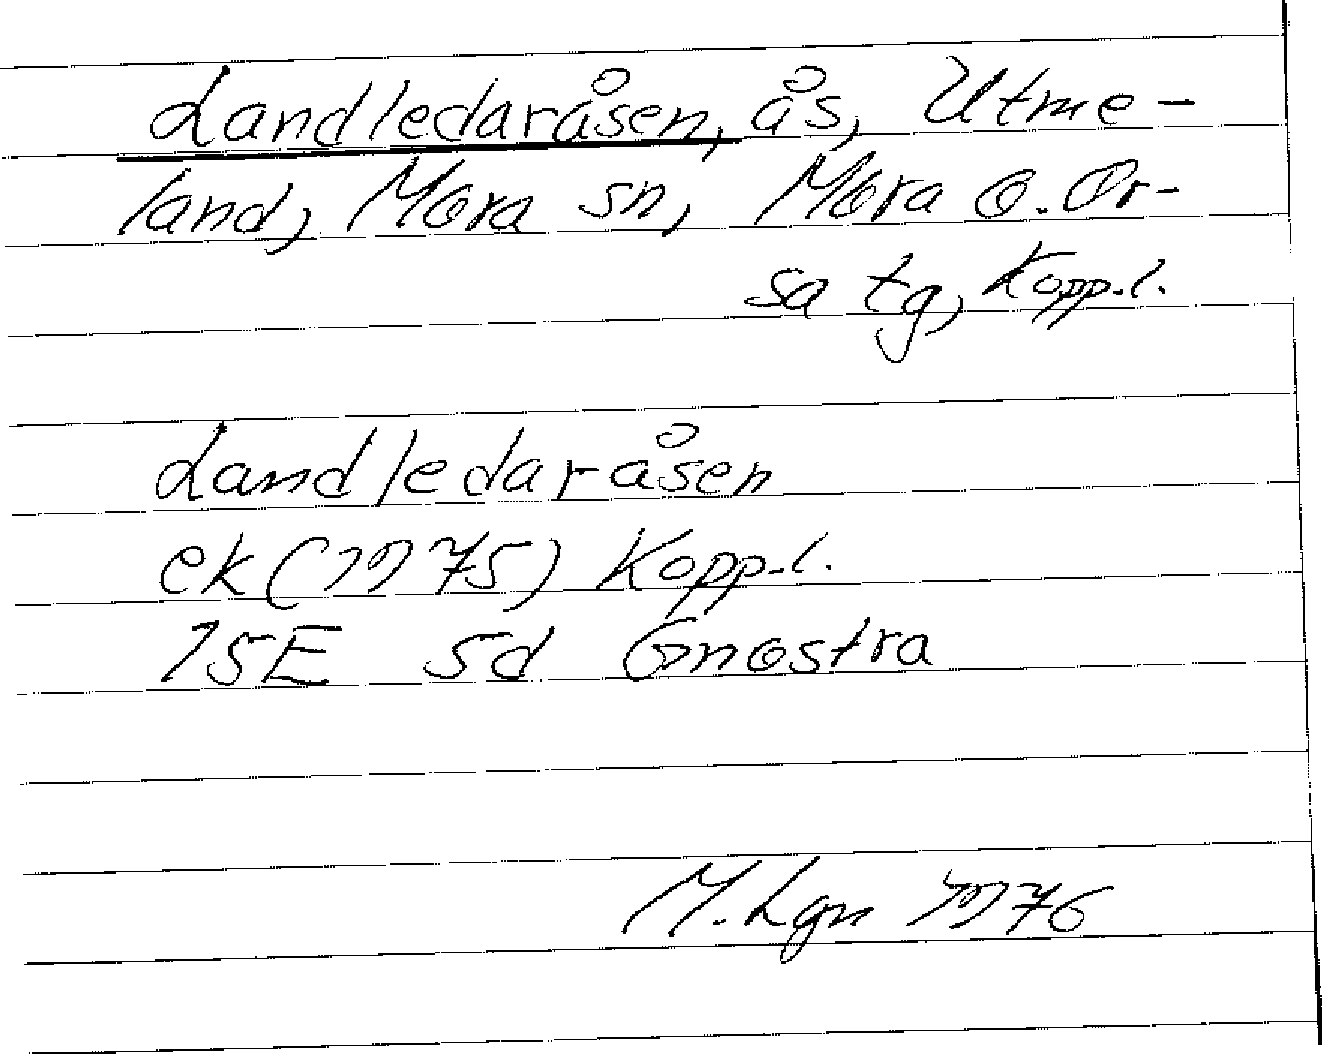 Landledaråsen, ås, Utme-
land, Mora sn, Mora o. Or-
sa tg, Kopp.l.
Landledaråsen
ek (1975) Kopp.l.
15E 5d Gnostra
M. Lgn 1976